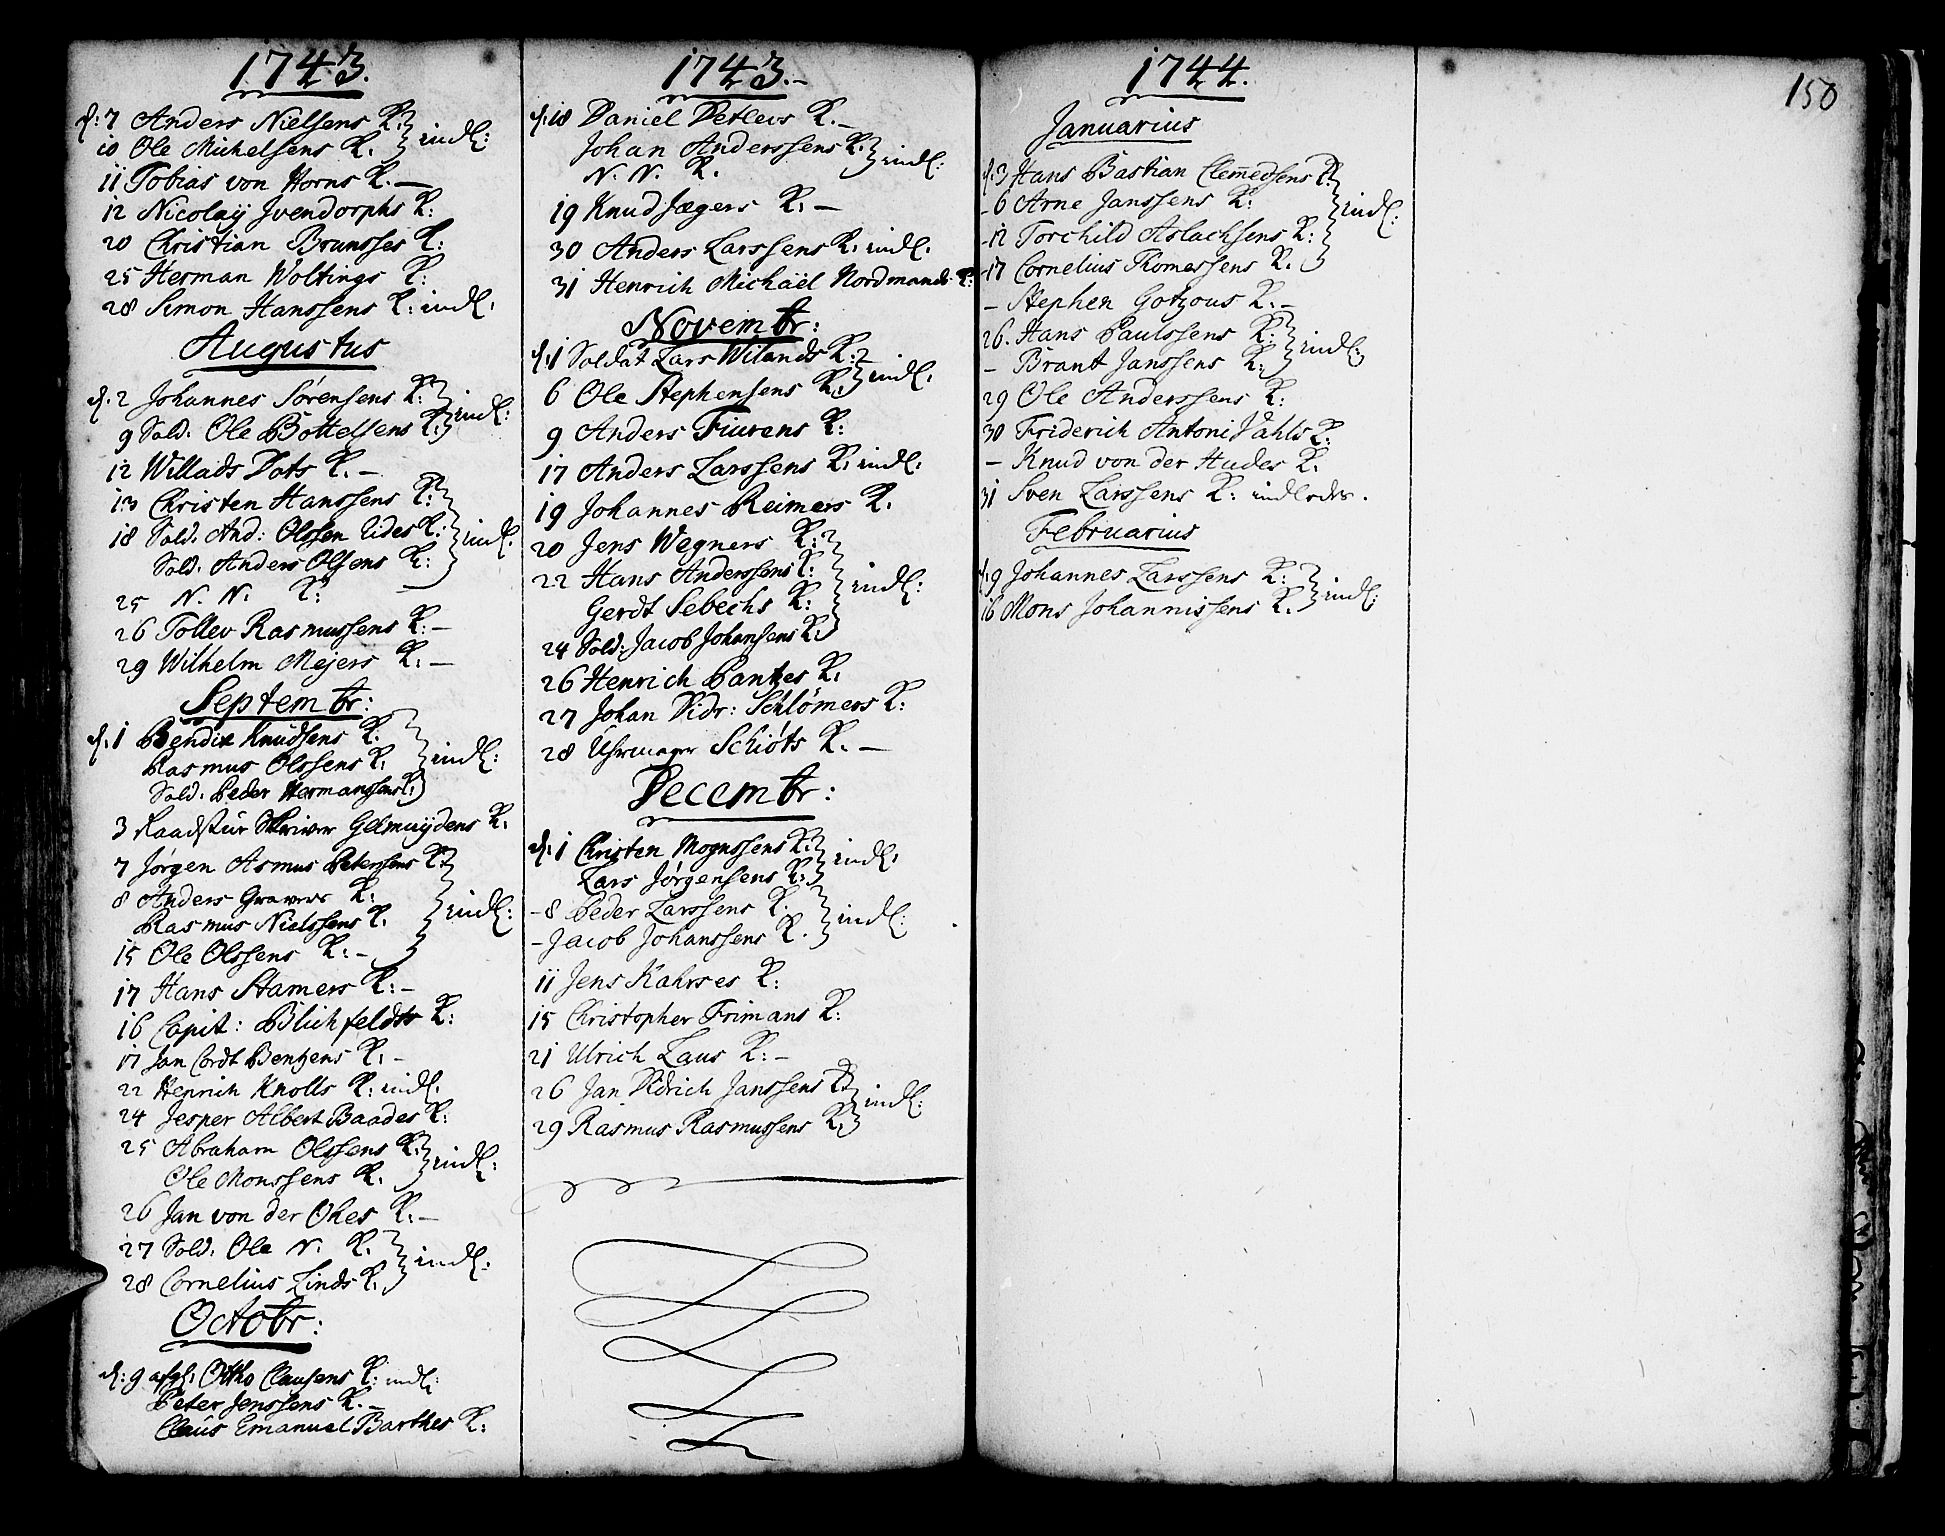 1743.
d: 7 Anders Nielsens K: indl:
10 Ole Michelsens K.
11 Tobias von Horns K. —
12 Nicolaÿ Jvendorphs K:
20 Christian Brunsses K:
25 Herman Woltings K:
28 Simon Hanssens K: indl:
Augustus
d. 2 Johannes Sörensens K: indl:
9 Sold: Ole Bottelsens K:
12 Willads Dots K. —
13 Christen Hanssens K: indl:
18 Sold. And: Olssen Lides K:
Sold. Anders Olsens K:
25 N. N. K:
26 Tollev Rasmussens K: —
29 Wilhelm Mejers K. —
Septembr:
d. 1 Bendix Knudsens K. indl:
Rasmus Olssens K.
Sold. Peder Hermanssens K:
3 Raadstue Skriver Gelmuÿdens K.
7 Jörgen Asmus Petersens K: indl:
8 Anders Gravers K:
Rasmus Nielssens K.
15 Ole Olssens K: —
17 Hans Stamers K: —
16 Capit: Blichfeldts K:
17 Jan Cordt Bentzens K. —
22 Henrich Knolls K: indl.
24 Jesper Albert Baades K:
25 Abraham Olssens K: indl:
Ole Monssens K.
26 Jan von der Ohes K. —
27 Sold. Ole N. K. indl:
28 Cornelius Linds K.
Octobr:
d: 9 Otho Clausens K: indl:
Peter Jenssens K. —
Claus Emanuel Barthes K:
1743. —
d: 18 Daniel Detlevs K. —
Johan Anderssens K. indl:
N. N. K.
19 Knud Jægers K. —
30 Anders Larssens K. indl.
31 Henrich Michaël Nordmands K:
Novembr:
d: 1 Soldat Lars Wilands K: indl.
6 Ole Stephensens K.
9 Anders Fiurens K:
17 Anders Larssens K. indl:
19 Johannes Reimers K.
20 Jens Wegners K: indl:
22 Hans Anderssens K:
Gerdt Sebechs K:
24 Sold: Jacob Johansens K:
26 Henrich Pantzes K.
27 Johan Didr: Schlömers K:
28 Uhrmager Schiöts K. —
Decembr:
d: 1 Christen Mognssens K: indl:
Lars Jörgensens K:
- 8 Peder Larssens K. indl:
- Jacob Johanssens K.
11 Jens Kahrses K:
15 Christopher Frimans K:
21 Ulrich Laus K: —
26 Jan Didrich Janssens K: indl:
29 Rasmus Rasmussens K.
1744.
Januarius
d: 3 Hans Bastian Clem̄edsens K: indl:
- 6 Arne Janssens K:
- 12 Torchild Aslachsens K:
- 17 Cornelius Thomessens K.
- Stephen Gotzous K. —
26. Hans Paulssens K: indl:
- Brant Janssens K:
29 Ole Anderssens K:
30 Friderich Antoni Vahls K:
- Knud von der Hudes K.
31 Sven Larssens K: indlodes.
Februarius
d: 9 Johannes Larssens K: indl:
16 Mons Johannissens K.
150